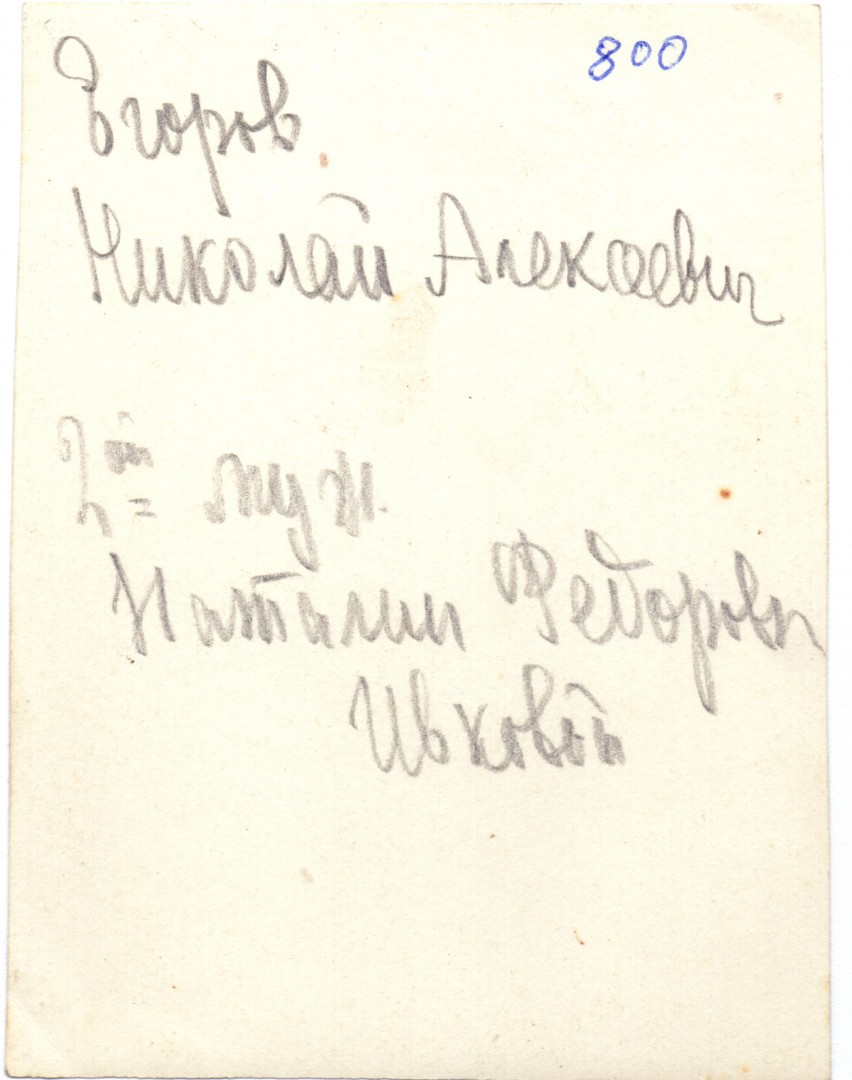 800
Егоров
Николай Алексеевич
2ой муж
Наталии Федоровны
Ивковой